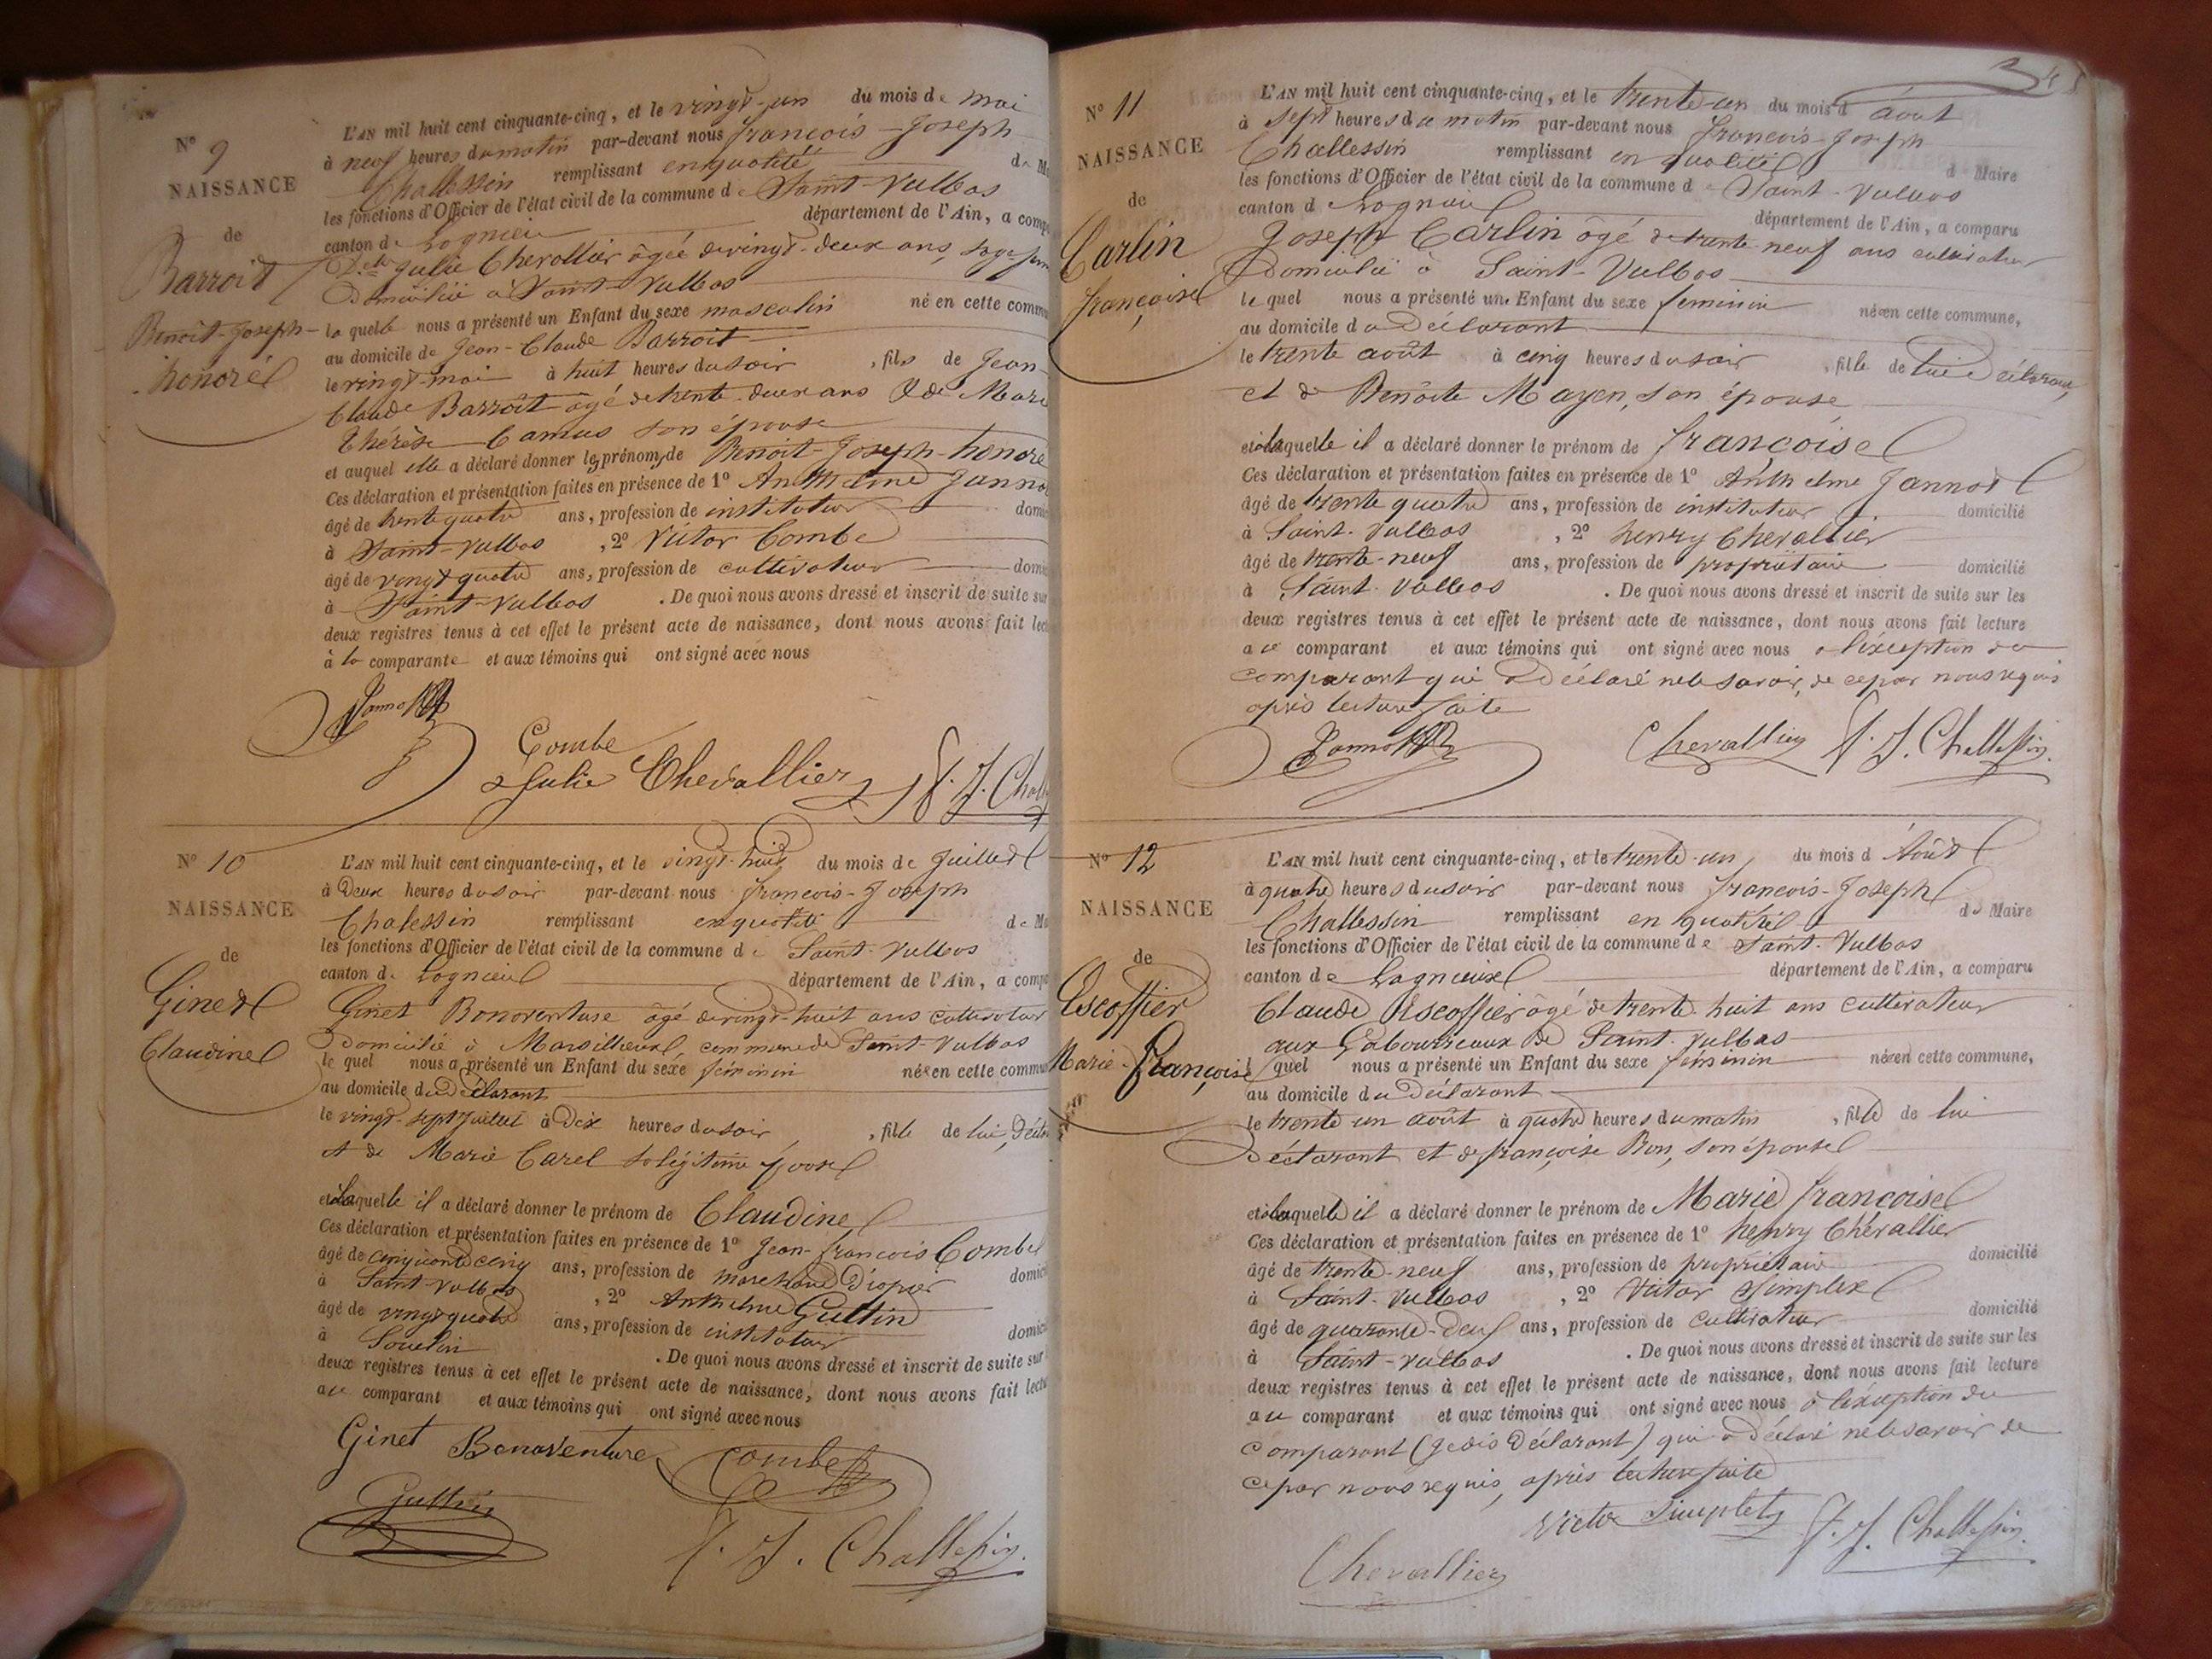 N° 9
NAISSANCE
de
Barroit
Benoit-Joseph-
honoré
L'AN mil huit cent cinquante-cinq, et le vingt-un du mois de mai
à neuf heures du matin par-devant nous françois-Joseph
Challessin remplissant en qualité de
les fonctions d'Officier de l'état civil de la commune de Saint-Vulbas
canton de Lagnieu département de l'Ain, a
Delle Julie Chevallier âgée de vingt-deux ans, sage
Domiciliée à Saint-Vulbas
la quelle nous a présenté un Enfant du sexe masculin né en cette
au domicile de Jean-Claude Barroit
le vingt mai à huit heures du soir, fils de Jean-
Claude Barroit âgé de trente-deux ans & de
Thérèse Camus son épouse
et auquel elle a déclaré donner les prénoms de Benoit-Joseph-honoré
Ces déclaration et présentation faites en présence de 1° Anthelme
âgé de trente quatre ans, profession de instituteur
à Saint-Vulbas, 2° Victor Combe
âgé de vingt quatre ans, profession de cultivateur
à Saint-Vulbas. De quoi nous avons dressé et inscrit de suite sur
deux registres tenus à cet effet le présent acte de naissance, dont nous avons fait
à la comparante et aux témoins qui ont signé avec nous
Jannot
Combe
Julie Chevallier F. J.
N° 10
NAISSANCE
de
Ginet
Claudine
L'AN mil huit cent cinquante-cinq, et le vingt-huit du mois de Juillet
à Deux heures du soir par-devant nous françois-Joseph
Chalessin remplissant en qualité de
les fonctions d'Officier de l'état civil de la commune de Saint-Vulbas
canton de Lagnieu département de l'Ain, a
Ginet Bonaventure âgé de vingt-huit ans cultivateur
Domicilié à Marcillieux, commune de Saint-Vulbas
le quel nous a présenté un Enfant du sexe féminin née en cette
au domicile du déclarant
le vingt-sept Juillet à Dix heures du soir, fille de lui,
et de Marie Carel sa légitime épouse
et à laquelle il a déclaré donner le prénom de Claudine
Ces déclaration et présentation faites en présence de 1° Jean-françois Combe
âgé de cinquante cinq ans, profession de marchand
à Saint-Vulbas, 2° Anthelme Guttin
âgé de vingt quatre ans, profession de instituteur
à. De quoi nous avons dressé et inscrit de suite sur
deux registres tenus à cet effet le présent acte de naissance, dont nous avons fait
au comparant et aux témoins qui ont signé avec nous
Ginet Bonaventure Combe
Guttin
F. J. Challessin
N° 11
NAISSANCE
de
Carlin
françoise
L'AN mil huit cent cinquante-cinq, et le trente-un du mois d'août
à sept heures du matin par-devant nous françois-Joseph
Challessin remplissant en qualité de Maire
les fonctions d'Officier de l'état civil de la commune de Saint-Vulbas
canton de Lagnieu département de l'Ain, a comparu
Joseph Carlin âgé de trente-neuf ans cultivateur
Domicilié à Saint-Vulbas
le quel nous a présenté une Enfant du sexe feminin née en cette commune,
au domicile du Déclarant
le trente août à cinq heures du soir, fille de lui Déclarant,
et de Benoîte Mayen, son épouse
et à laquelle il a déclaré donner le prénom de françoise
Ces déclaration et présentation faites en présence de 1° Anthelme Jannot
âgé de trente quatre ans, profession de instituteur domicilié
à Saint-Vulbas, 2° henry Chevallier
âgé de trente-neuf ans, profession de propriétaire domicilié
à Saint-Vulbas. De quoi nous avons dressé et inscrit de suite sur les
deux registres tenus à cet effet le présent acte de naissance, dont nous avons fait lecture
au comparant et aux témoins qui ont signé avec nous à l'éxception du
comparant qui a Déclaré ne le savoir, de ce par nous requis
après lecture faite
Jannot Chevallier F. J. Challessin
N° 12
NAISSANCE
de
Escoffier
Marie-françoise
L'AN mil huit cent cinquante-cinq, et le trente-un du mois d'Août
à quatre heures du soir par-devant nous françois-Joseph
Challessin remplissant en qualité de Maire
les fonctions d'Officier de l'état civil de la commune de Saint-Vulbas
canton de Lagnieu département de l'Ain, a comparu
Claude Escoffier âgé de trente-huit ans cultivateur
aux Gaboureaux De Saint-Vulbas
quel nous a présenté un Enfant du sexe féminin née en cette commune,
au domicile du Déclarant
le trente un août à quatre heures du matin, fille de lui
Déclarant et de françoise Bon, son épouse
et à laquelle il a déclaré donner le prénom de Marie françoise
Ces déclaration et présentation faites en présence de 1° henry Chevallier
âgé de trente-neuf ans, profession de propriétaire domicilié
à Saint-Vulbas, 2° Victor Simplex
âgé de quarante-deux ans, profession de cultivateur domicilié
à Saint-Vulbas. De quoi nous avons dressé et inscrit de suite sur les
deux registres tenus à cet effet le présent acte de naissance, dont nous avons fait lecture
au comparant et aux témoins qui ont signé avec nous à l'éxception du
comparant (je dis Déclarant) qui a Déclaré ne le savoir de
ce par nous requis, après lecture faite
Victor Simplet F. J. Challessin
Chevallier